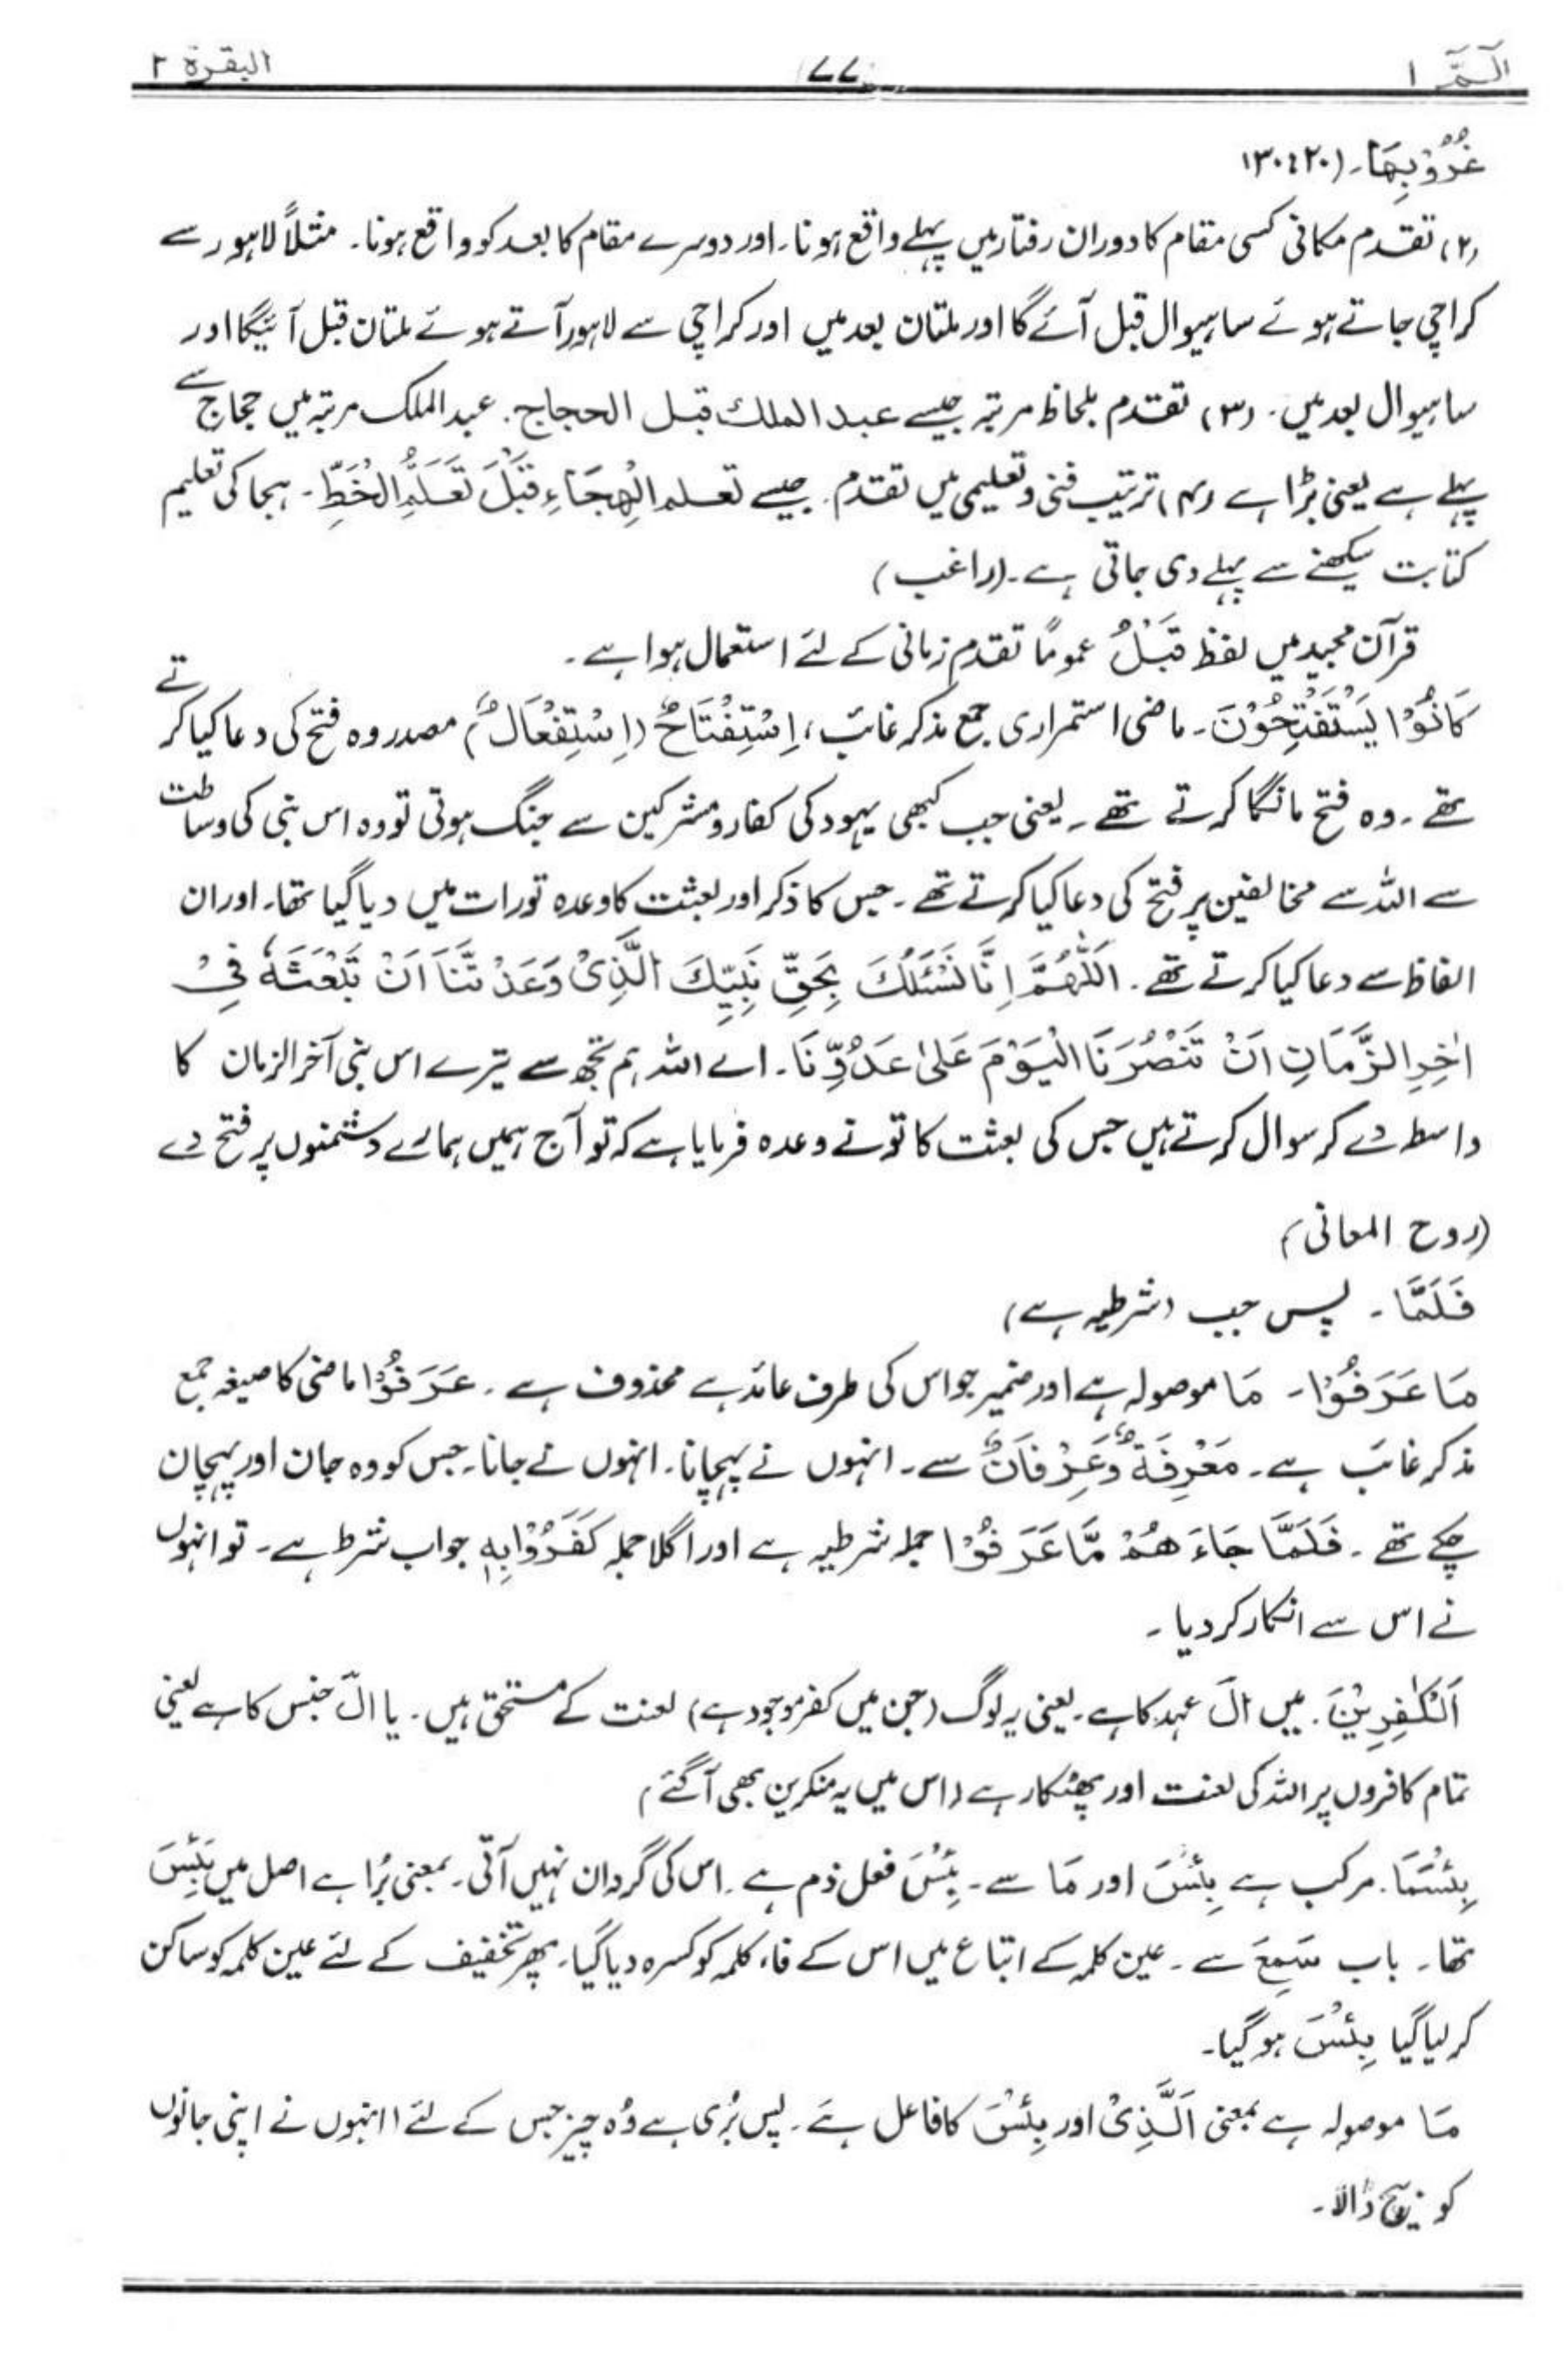 الٓمّٓ ۱ ۷۷ البقرة ۲
غُرُوْبِهَا۔ (۲۰: ۱۳۰)
(۲) تقدم مکانی کسی مقام کا دوران رفتار میں پہلے واقع ہونا۔ اور دوسرے مقام کا بعد کو واقع ہونا۔ مثلاً لاہور سے
کراچی جاتے ہوئے ساہیوال قبل آئے گا اور ملتان بعد میں اور کراچی سے لاہور آتے ہوئے ملتان قبل آئیگا اور
ساہیوال بعد میں۔ (۳) تقدم بلحاظ مرتبہ جیسے عبد الملك قبل الحجاج۔ عبد الملک مرتبہ میں حجاج سے
پہلے ہے یعنی بڑا ہے (۴) ترتیب فنی و تعلیمی میں تقدم۔ جیسے تعلم الْهِجَاءِ قَبْلَ تَعَلُّمِ الْخَطِّ۔ ہجا کی تعلیم
کتابت سیکھنے سے پہلے دی جاتی ہے۔ (راغب)
قرآن مجید میں لفظ قَبْلُ عمومًا تقدم زمانی کے لئے استعمال ہوا ہے۔
كَانُوْا يَسْتَفْتِحُوْنَ۔ ماضی استمراری جمع مذکر غائب، اِسْتِفْتَاحٌ (اِسْتِفْعَالٌ) مصدر وہ فتح کی دعا کیا کرتے
تھے۔ وہ فتح مانگا کرتے تھے۔ یعنی جب کبھی یہود کی کفار و مشرکین سے جنگ ہوتی تو وہ اس نبی کی وساطت
سے اللہ سے مخالفین پر فتح کی دعا کیا کرتے تھے۔ جس کا ذکر اور بعثت کا وعدہ تورات میں دیا گیا تھا۔ اور ان
الفاظ سے دعا کیا کرتے تھے۔ اَللّٰهُمَّ اِنَّا نَسْئَلُكَ بِحَقِّ نَبِيِّكَ الَّذِىْ وَعَدْتَّنَا اَنْ تَبْعَثَهٗ فِىْ
اٰخِرِ الزَّمَانِ اَنْ تَنْصُرَنَا الْيَوْمَ عَلىٰ عَدُوِّنَا۔ اے اللہ ہم تجھ سے تیرے اس نبی آخر الزمان کا
واسطہ دے کر سوال کرتے ہیں جس کی بعثت کا تو نے وعدہ فرمایا ہے کہ تو آج ہمیں ہمارے دشمنوں پر فتح دے
(روح المعانی)
فَلَمَّا۔ پس جب (شرطیہ ہے)
مَا عَرَفُوْا۔ مَا موصولہ ہے اور ضمیر جو اس کی طرف عائد ہے محذوف ہے۔ عَرَفُوْا ماضی کا صیغہ جمع
مذکر غائب ہے۔ مَعْرِفَةٌ وَّعِرْفَانٌ سے۔ انہوں نے پہچانا۔ انہوں نے جانا۔ جس کو وہ جان اور پہچان
چکے تھے۔ فَلَمَّا جَاءَ هُمْ مَّا عَرَفُوْا جملہ شرطیہ ہے اور اگلا جملہ كَفَرُوْا بِهٖ جواب شرط ہے۔ تو انہوں
نے اس سے انکار کر دیا۔
اَلْكٰفِرِيْنَ۔ میں اَلْ عہد کا ہے۔ یعنی یہ لوگ (جن میں کفر موجود ہے) لعنت کے مستحق ہیں۔ یا الْ جنس کا ہے یعنی
تمام کافروں پر اللہ کی لعنت اور پھٹکار ہے (اس میں یہ منکرین بھی آگئے)
بِئْسَمَا۔ مرکب ہے بِئْسَ اور مَا سے۔ بِئْسَ فعل ذم ہے۔ اس کی گردان نہیں آتی۔ بمعنی بُرا ہے اصل میں بَئِسَ
تھا۔ باب سَمِعَ سے۔ عین کلمہ کے اتباع میں اس کے فاء کلمہ کو کسرہ دیا گیا۔ پھر تخفیف کے لئے عین کلمہ کو ساکن
کر لیا گیا بِئْسَ ہو گیا۔
مَا موصولہ ہے بمعنی اَلَّذِىْ اور بِئْسَ کا فاعل ہے۔ پس بُری ہے وُہ چیز جس کے لئے انہوں نے اپنی جانوں
کو بیچ ڈالا۔